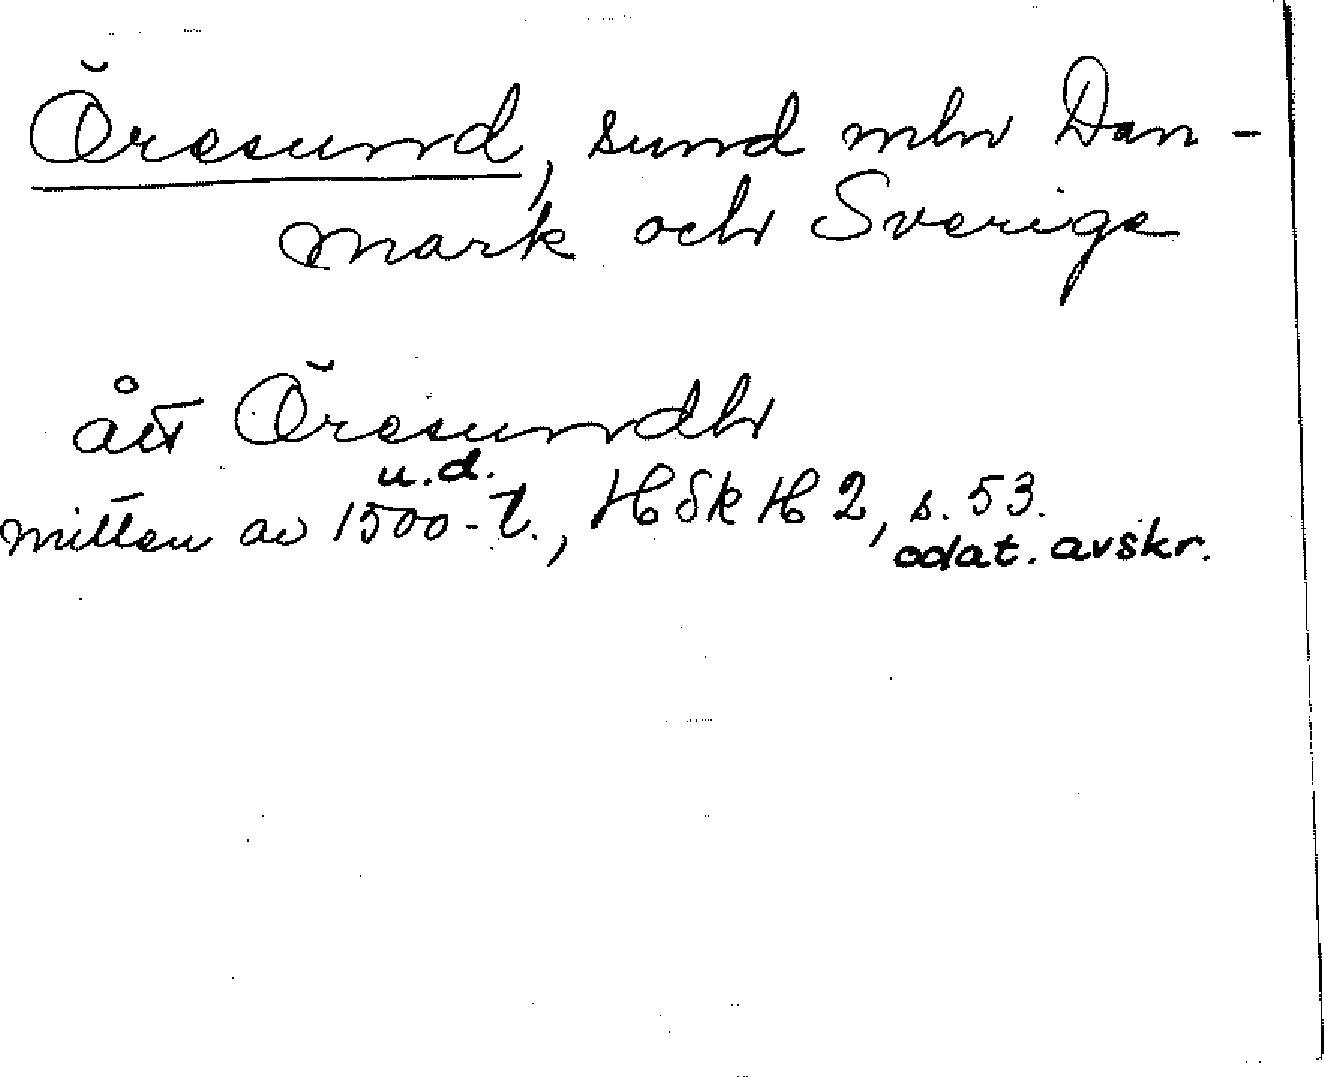 Öresund, sund mln Dan-
mark och Sverige
ått Öresundh
u.d.
mitten av 1500-t., HSK H 2, s. 53.
odat. avskr.